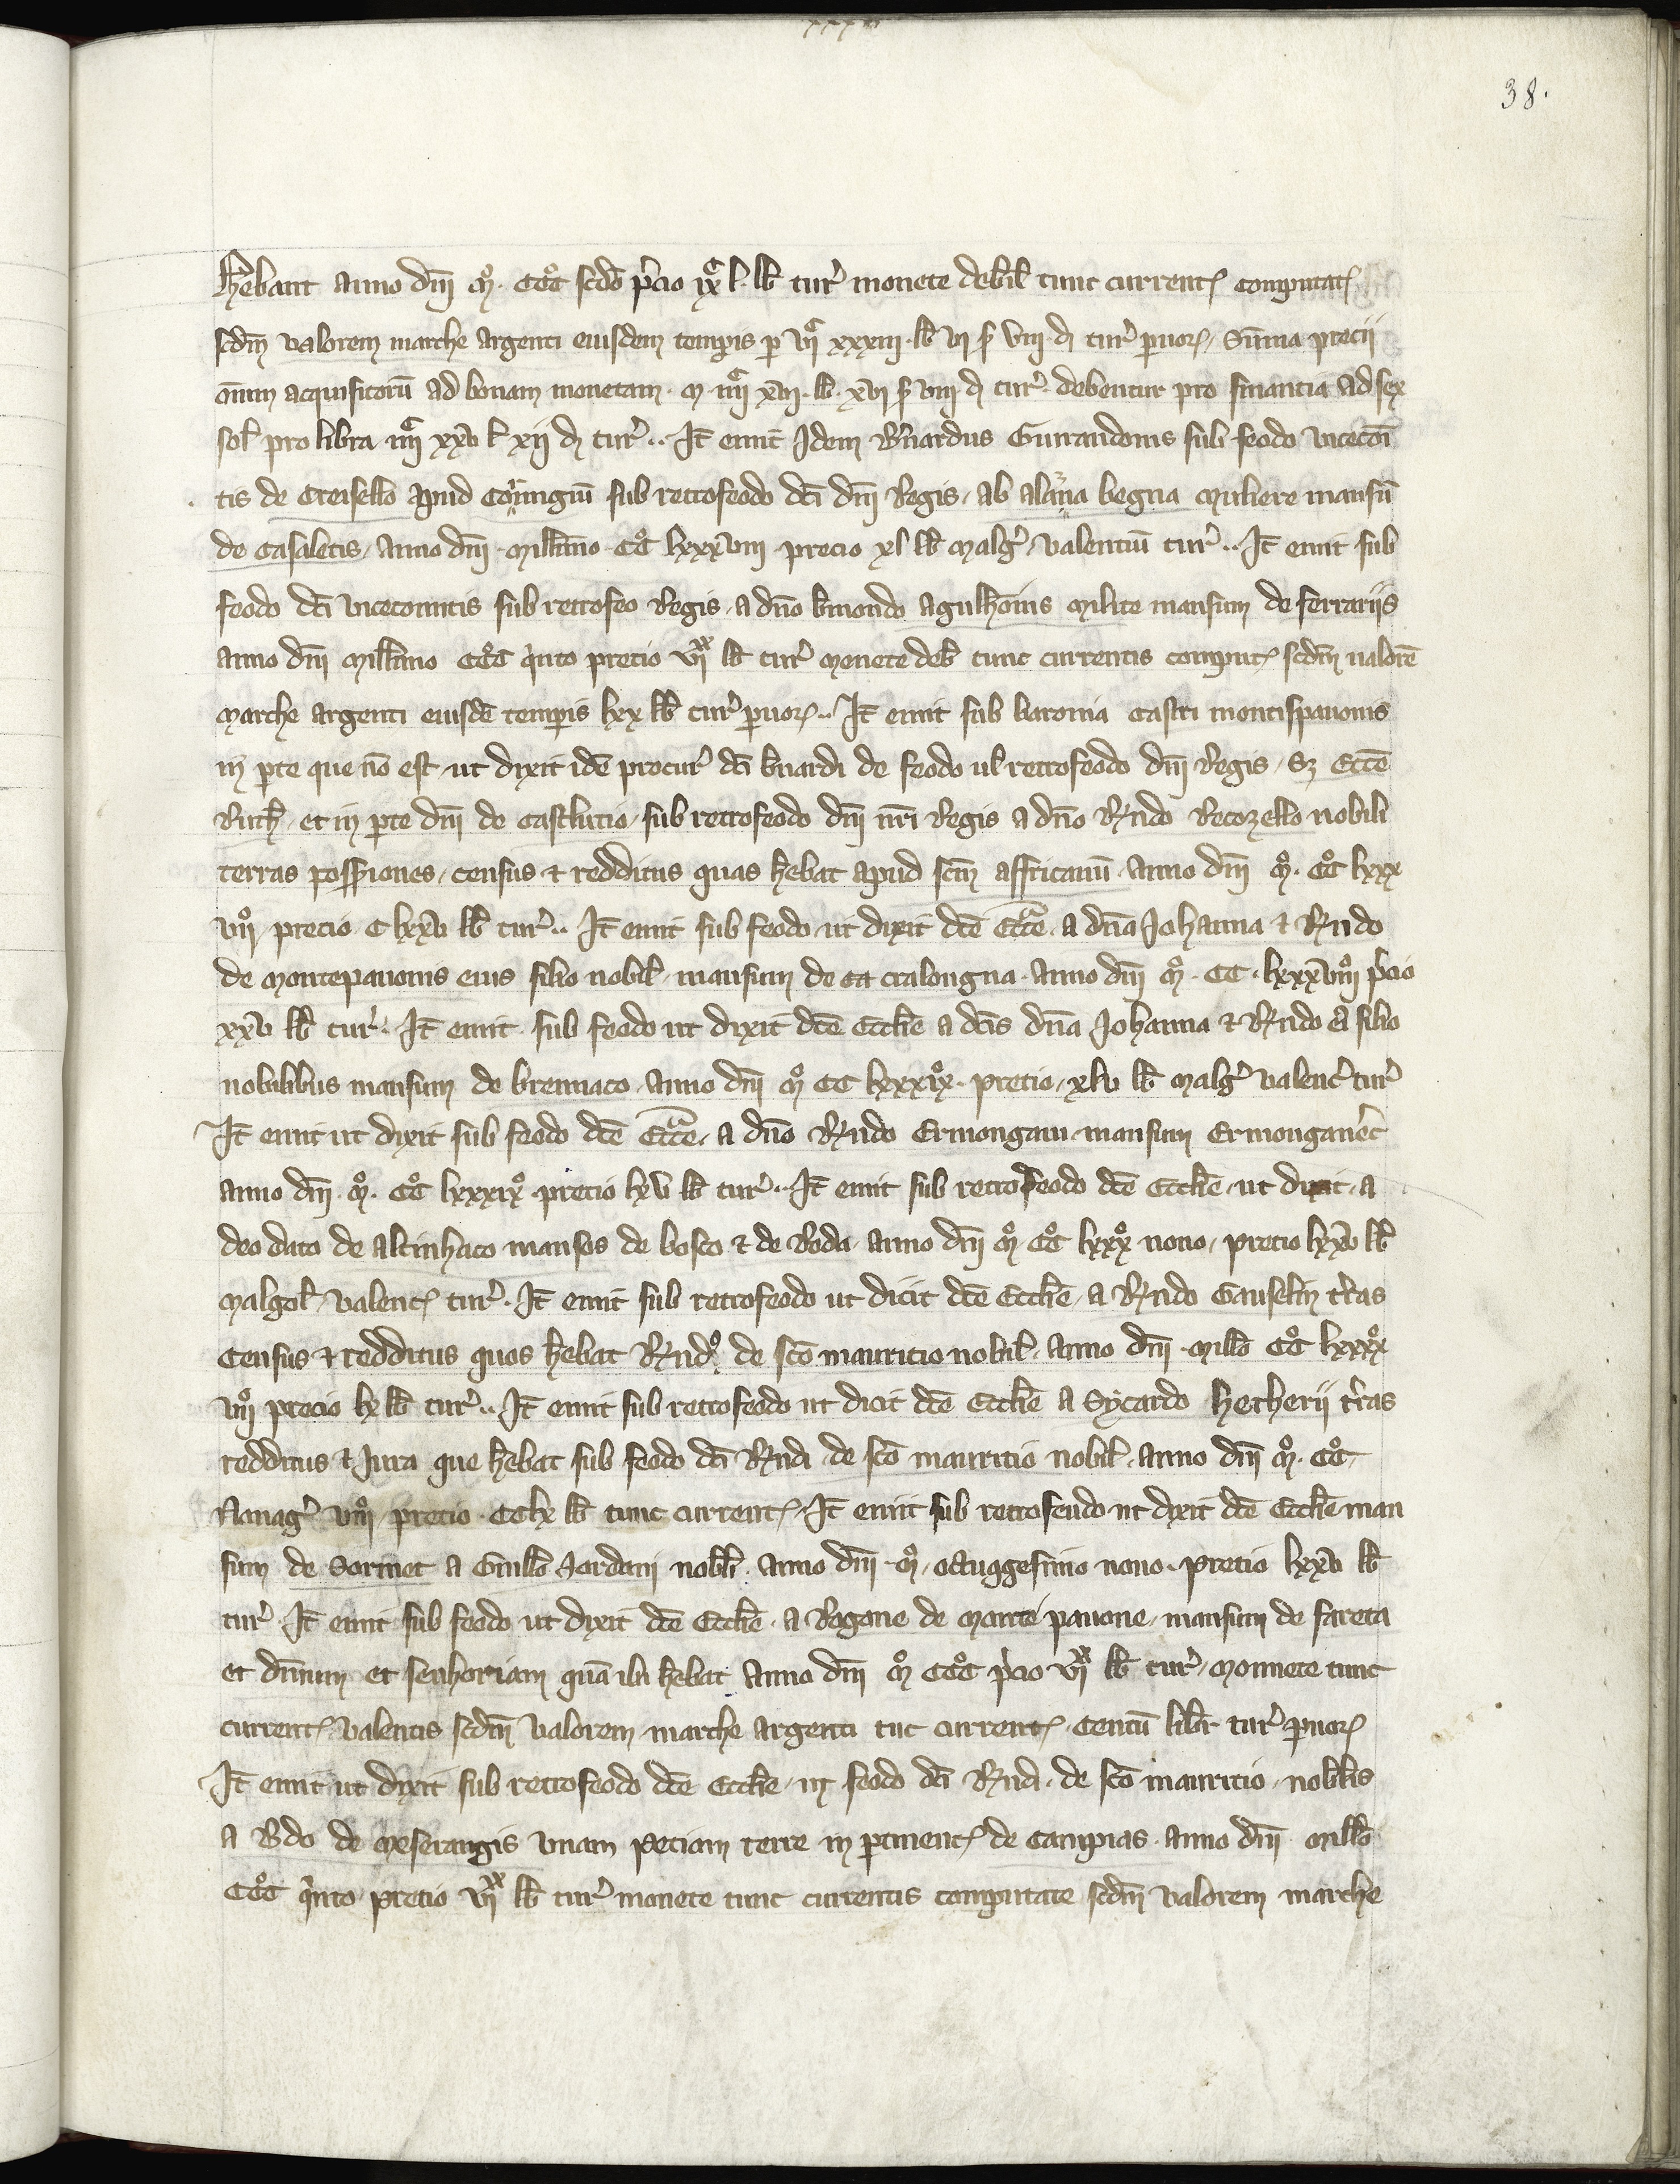 xxxiii
38.
hēbant anno dnī mͦ. ccͦc scdō p̄cio ixͨ l. lb tur̄ monete debil tunc current computat
scdm valorem marche argenti eiusdem tempis p viͨ xxxiii lb vi s̄ viii d tur̄ puor, Sūma precii
oīnm acquisitorū ad bonam monetam. m iiiͨ xvii. lb. xvi s̄ viii d tur̄. debentur pro financia ad sex
sol pro libra iiiiͨ xxv l xii d tur̄.. It emit Idem Bn̄ardus Guirandonis sub feodo vicecoī
tis de Creisello apud Conīngiū sub retrofeodo dcī dnī Regis, ab alaīna begua muliere mansū
de Casaletis, anno dnī millīmo ccͦ lxxxviii precio xl lb malḡ, valentiū tur̄.. It emit sub
feodo dcī vicecomitis sub retrofeo Regis, a dn̄o b̄mondo agulhonis milite mansum de ferrariis
anno dnī millīmo ccͦc q̄nto precio viiˣˣ lb tur̄ monete deb tunc currentis comput scdm valorē
marche argenti eiusdē tempis lxx lb tur̄ puor.. It emit sub baronia castri montispauonis
in pte que nō est, ut dixit idē procur̄ dcī bn̄ardi de feodo ul retrofeodo dnī Regis, Sz Eccē
Ruth, et in pte dnī de castlucio, sub retrofeodo dnī nrī Regis a dn̄o Rn̄do Recozello nobili
terras possiones, census & redditus quas hēbat apud scm affricanū anno dnī mͦ. ccͦ lxxx
viiͦ, precio c lxxv lb tur̄.. It emit sub feodo ut dixit dcē Eccē, a dn̄a Johanna & Rn̄do
de montepauonis eius filio nobil, mansum de ca cralongna anno dnī mͦ. cc. lxxxviiiͦ p̄cio
xxv lb tur̄. It emit sub feodo ut dixit dcē Ecclīe a dcīs dn̄a Johanna & Rn̄do ei filio
nobilibus mansum de brennaco, anno dnī mͦ cc lxxxixͦ. precio, xlv lb malḡ valenc̄ tur̄
It emit ut dixit sub feodo dcē Eccē, a dn̄o Rn̄do Ermongaui, mansum Ermonganēc
anno dnī. mͦ. ccͦ lxxxixͦ precio lxv lb tur̄.. It emit sub retrofeodo dcē Ecclīe, ut dixit, a
deo dato de altinhaco mansos de bosco & de Roda, anno dnī mͦ ccͦ lxxxͦ nono, precio lxxv lb
malgol, valent tur̄. It emit sub retrofeodo ut dicit dcē Ecclīe, a Rn̄do Gauselin tr̄as
Census & redditus quos hēbat Rn̄dꝰ de scō mauricio nobil, anno dnī. millō ccͦ lxxxͦ
viiiͦ precio lx lb tur̄.. It emit sub retrofeodo ut dicit dcē Ecclīe a Sycardo hetherii tr̄as
redditus & Jura que hēbat sub feodo dcī Rn̄di de scō mauricio nobil, anno dnī mͦ. ccͦ,
Nonaḡ viiiͦ, precio ccͦlx lb tunc current, It emit sub retrofeudo ut dixit dcē Ecclīe man
sum de Sormet a Guillō Jordani nobl. anno dnī mͦ, octuggesimo nono, precio lxxv lb
tur̄. It emit sub feodo ut dixit dcē Ecclīe, a Rogone de monte pauone, mansum de fareta
et dnīum et senhoriam quā ibi hēbat anno dnī mͦ ccͦc p̄cio viiˣˣ lb tur̄, monnete tunc
current valentis scdm valorem marche argenti tūc current, Centū libr tur̄ puor
It emit ut dixit sub retrofeodo dcē Ecclīe, in feodo dcī Rn̄di, de scō mauricio, noblis
a Rdo de meserangis vnam peciam terre in ptinent de Campias, anno dnī millō
ccͦc q̄nto precio viiˣˣ lb tur̄ monete tunc currentis computate scdm valorem marche